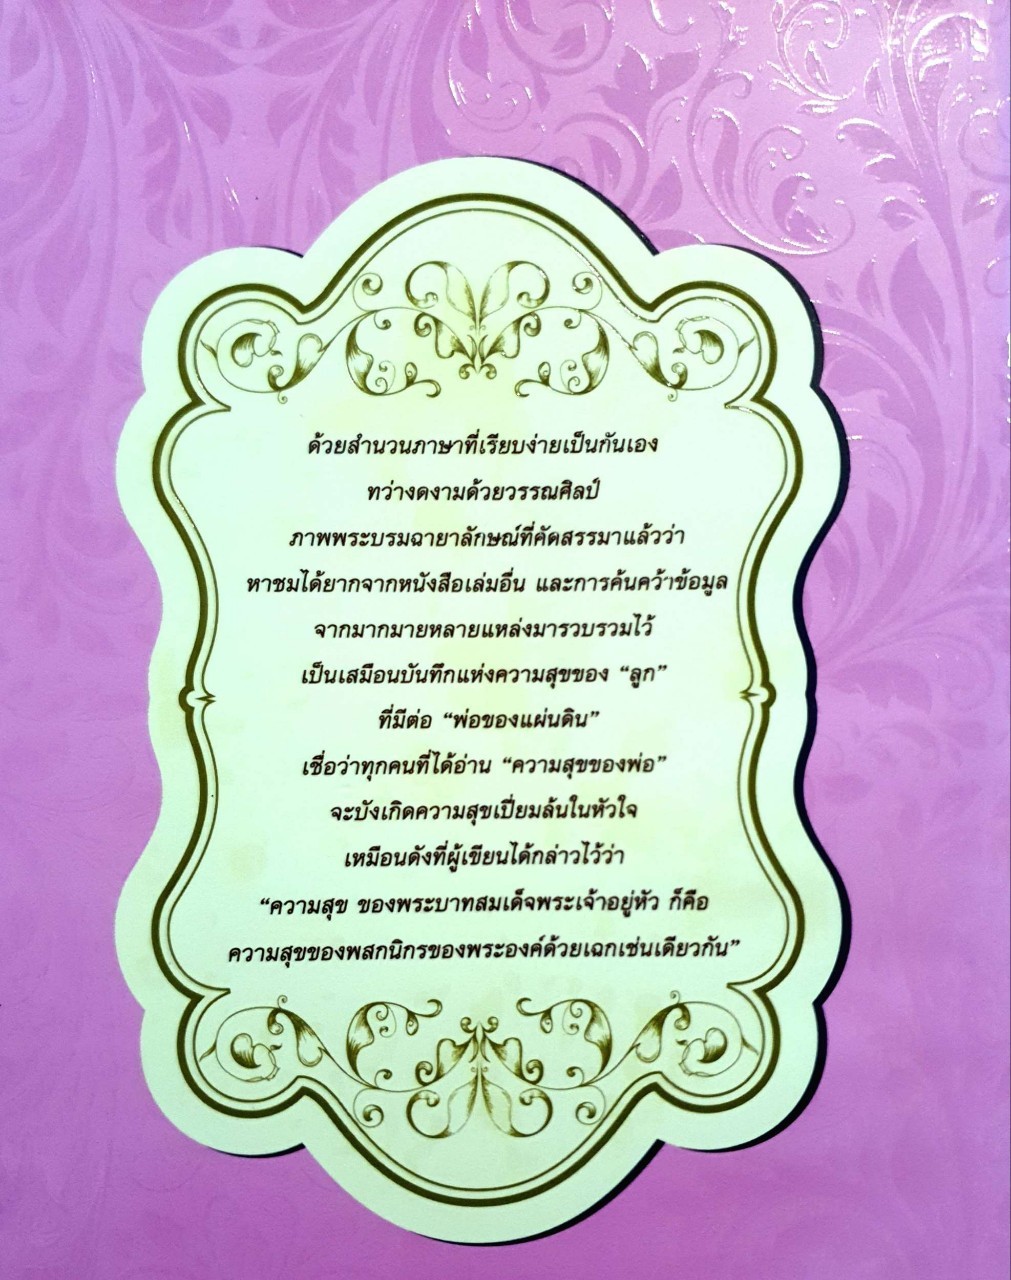 ด้วยสำนวนภาษาที่เรียบง่ายเป็นกันเอง
ทว่างดงามด้วยวรรณศิลป์
ภาพพระบรมฉายาลักษณ์ที่คัดสรรมาแล้วว่า
หาชมได้ยากจากหนังสือเล่มอื่น และการค้นคว้าข้อมูล
จากมากมายหลายแหล่งมารวบรวมไว้
เป็นเสมือนบันทึกแห่งความสุขของ “ลูก”
ที่มีต่อ “พ่อของแผ่นดิน”
เชื่อว่าทุกคนที่ได้อ่าน “ความสุขของพ่อ”
จะบังเกิดความสุขเปี่ยมล้นในหัวใจ
เหมือนดังที่ผู้เขียนได้กล่าวไว้ว่า
“ความสุข ของพระบาทสมเด็จพระเจ้าอยู่หัว ก็คือ
ความสุขของพสกนิกรของพระองค์ด้วยเฉกเช่นเดียวกัน”